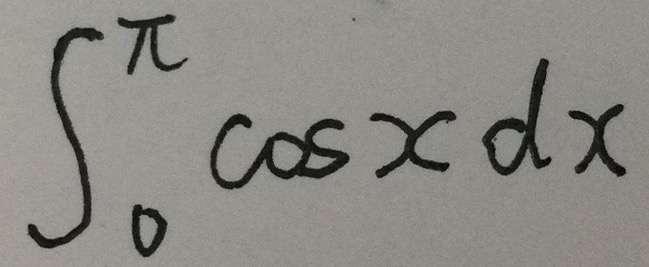 ∫₀^π cos x dx